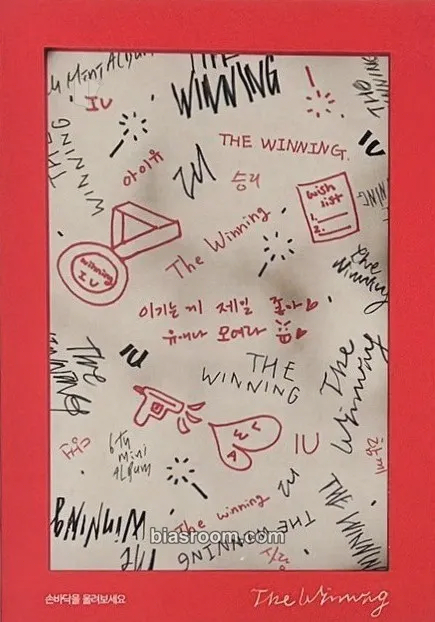 6th Mini Album
THE
WINNING
IU
THE WINNING
IU
IU
THE WINNING.
아이유
IU
승리
wish
list
1.
2.
WINNING
The Winning
winning
IU
The
Winning
이기는 게 제일 좋아
유애나 모여라
THE
WINNING
IU
THE
WINNING
The
Winning
6th
mini
ALBUM
IU
The winning
IU
THE WINNING
THE WINNING
THE WINNING
사랑
biasroom.com
손바닥을 올려보세요
The Winning